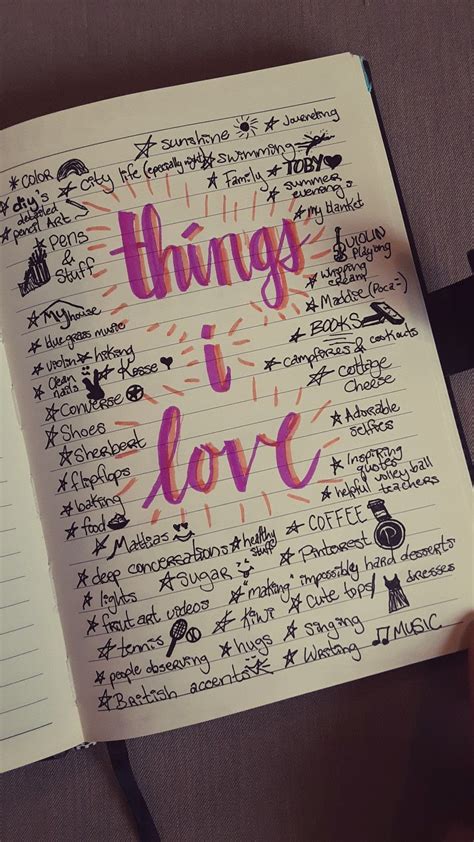 sunshine
Journeling
COLOR
City life (especially night)
Swimming
diy's
detailed
pencil Art
Family
TOBY
summer
evenings
my blanket
Pens
&
Stuff
things
i
love
VIOLIN
Playing
Whipping
cream
Maddie (Poca-)
My house
blue grass music
BOOKS
violin
hiking
campfires & cookouts
Clean
nails
Kosse
cottage
Cheese
Converse
Shoes
Adorable
selfies
Sherbert
Inspiring
quotes
flipflops
volley ball
baking
helpful teachers
food
COFFEE
Mattias
healthy
stuff
Pinterest
deep conversations
Sugar
making "impossibly hard desserts
lights
Cute tops/
dresses
fruit art videos
Kiwi
Singing
tennis
hugs
MUSIC
people observing
Writing
British accents